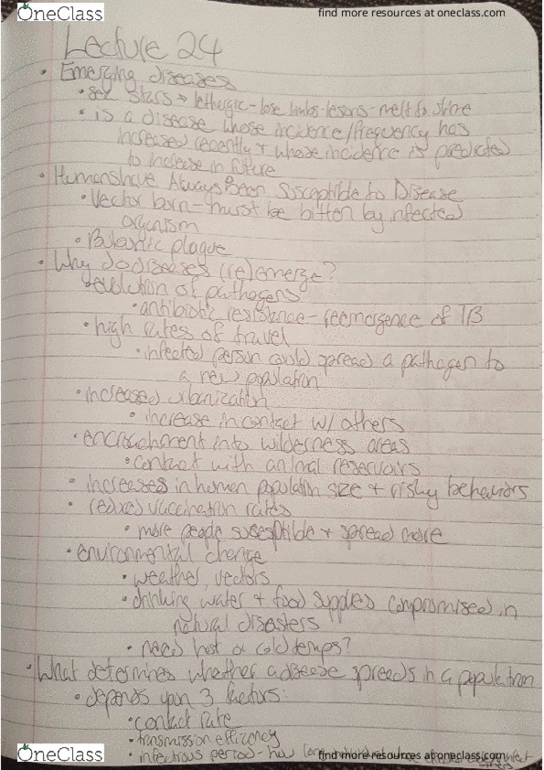 OneClass
find more resources at oneclass.com
Lecture 24
• Emerging diseases
• sea stars → lethargic-lose limbs-lesions-melt to slime
• is a disease whose incidence/frequency has
increased recently + whose incidence is predicted
to increase in future
• Humans have Always Been Susceptible to Disease
• Vector born - must be bitten by infected
organism
• Bubonic plague
• Why do diseases (re)emerge?
• evolution of pathogens
• antibiotic resistance - reemergence of TB
• high rates of travel
• infected person could spread a pathogen to
a new population
• increased urbanization
• increase in contact w/ others
• encroachment into wilderness areas
• contact with animal reservoirs
• increases in human population size + risky behaviors
• reduced vaccination rates
• more people susceptible + spread more
• environmental change
• weather, vectors
• drinking water + food supplies compromised in
natural disasters
• need hot or cold temps?
• What determines whether a disease spreads in a population
• depends upon 3 factors:
• contact rate
• transmission efficiency
• infectious period - how
OneClass
find more resources at oneclass.com